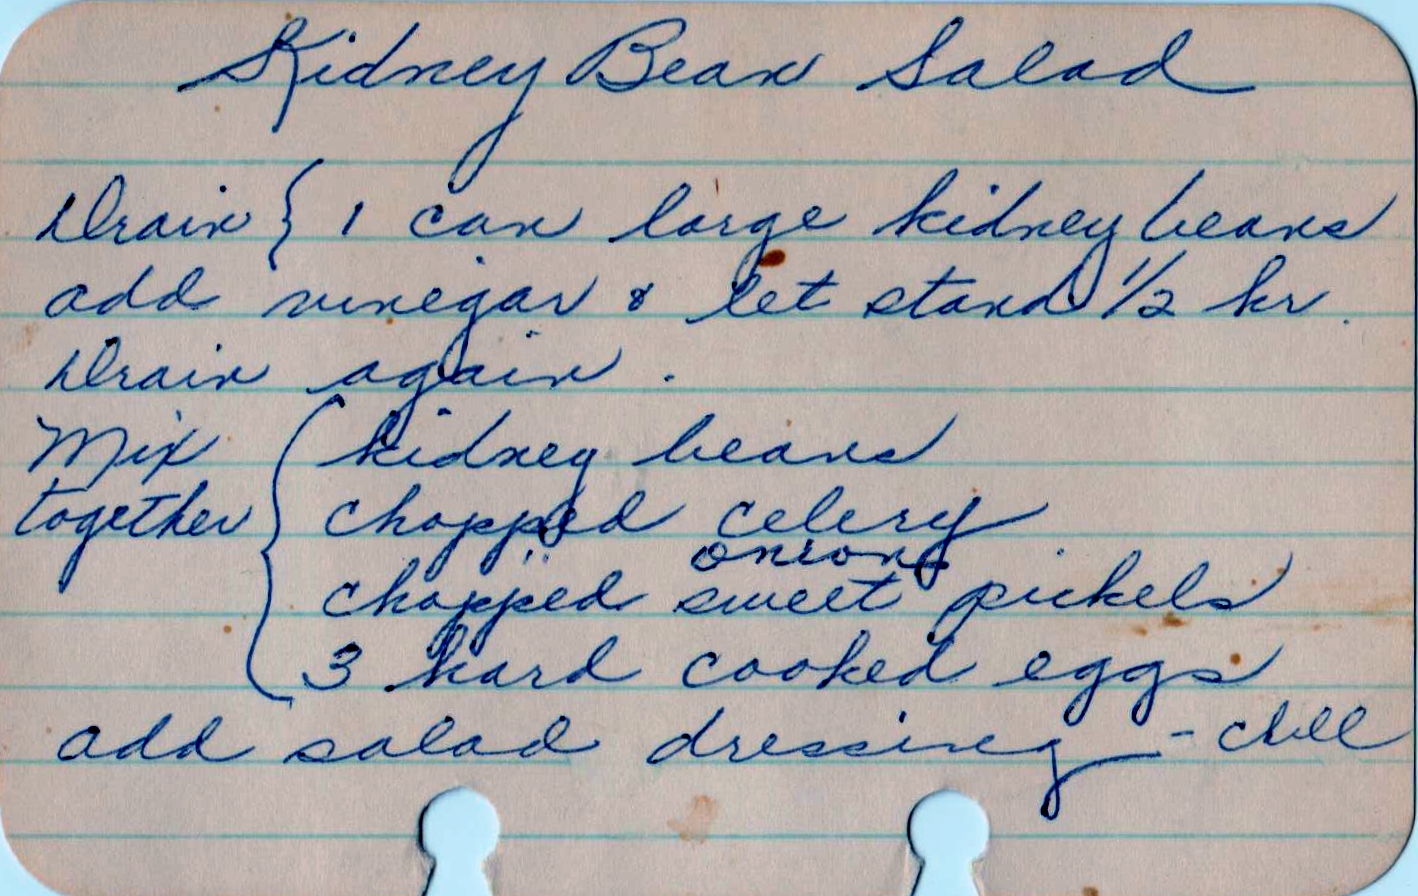 Kidney Bean Salad
Drain { 1 can large kidney beans
add vinegar & let stand 1/2 hr.
Drain again.
Mix { kidney beans
together chopped celery
" onions
chopped sweet pickels
3 hard cooked eggs
add salad dressing - chill